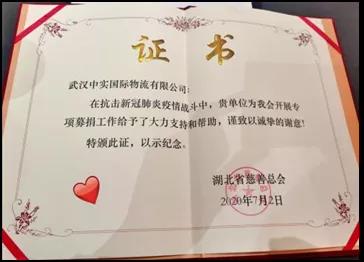 证书
武汉中实国际物流有限公司:
在抗击新冠肺炎疫情战斗中，贵单位为我会开展专
项募捐工作给予了大力支持和帮助，谨致以诚挚的谢意!
特颁此证，以示纪念。
湖北省慈善总会
2020年7月2日